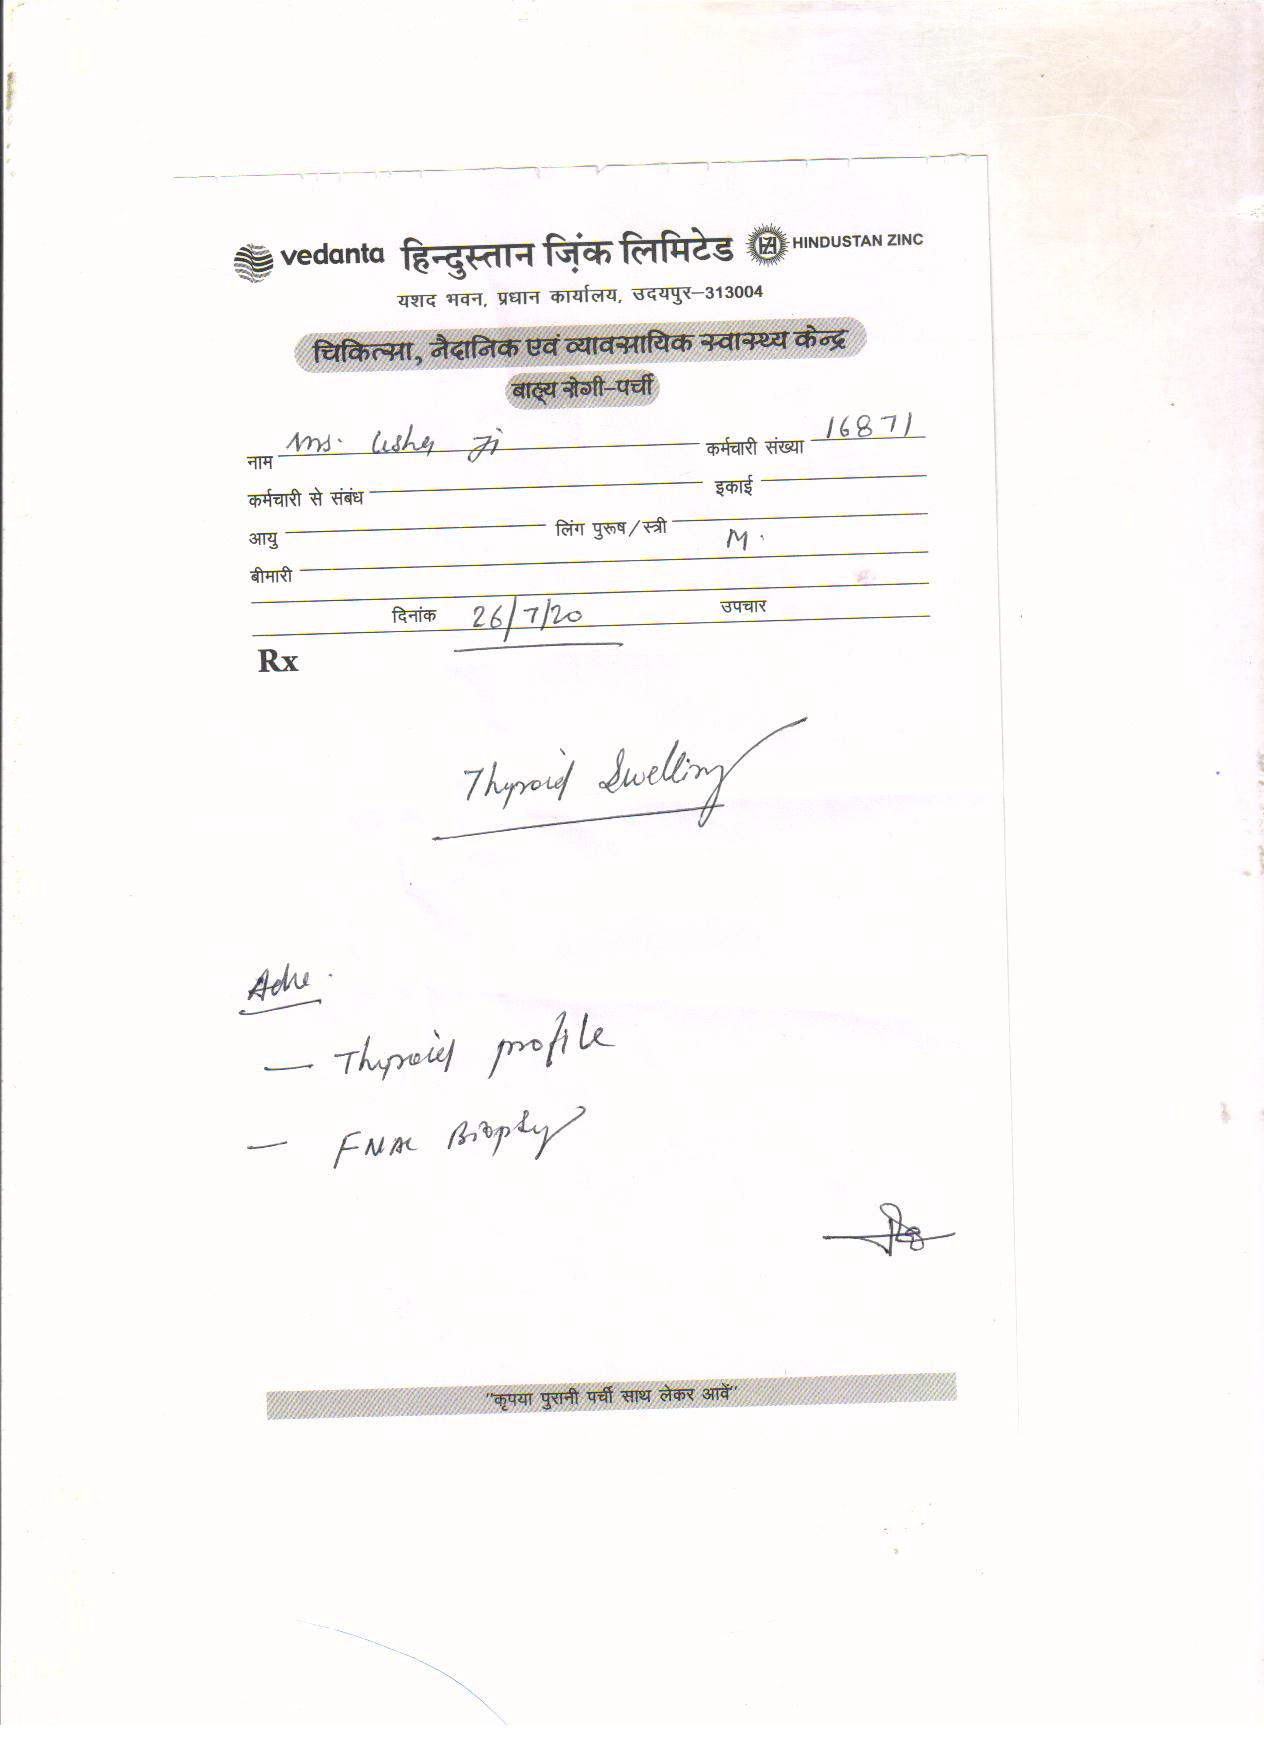 vedanta हिन्दुस्तान ज़िंक लिमिटेड HINDUSTAN ZINC
यशद भवन, प्रधान कार्यालय, उदयपुर–313004
चिकित्सा, नैदानिक एवं व्यावसायिक स्वास्थ्य केन्द्र
बाह्य रोगी–पर्ची
नाम Ms. Usha Ji कर्मचारी संख्या 16871
कर्मचारी से संबंध इकाई
आयु लिंग पुरूष/स्त्री M.
बीमारी
दिनांक 26/7/20 उपचार
Rx
Thyroid Swelling
Adv.
— Thyroid profile
— FNAC Biopsy
"कृपया पुरानी पर्ची साथ लेकर आवें"